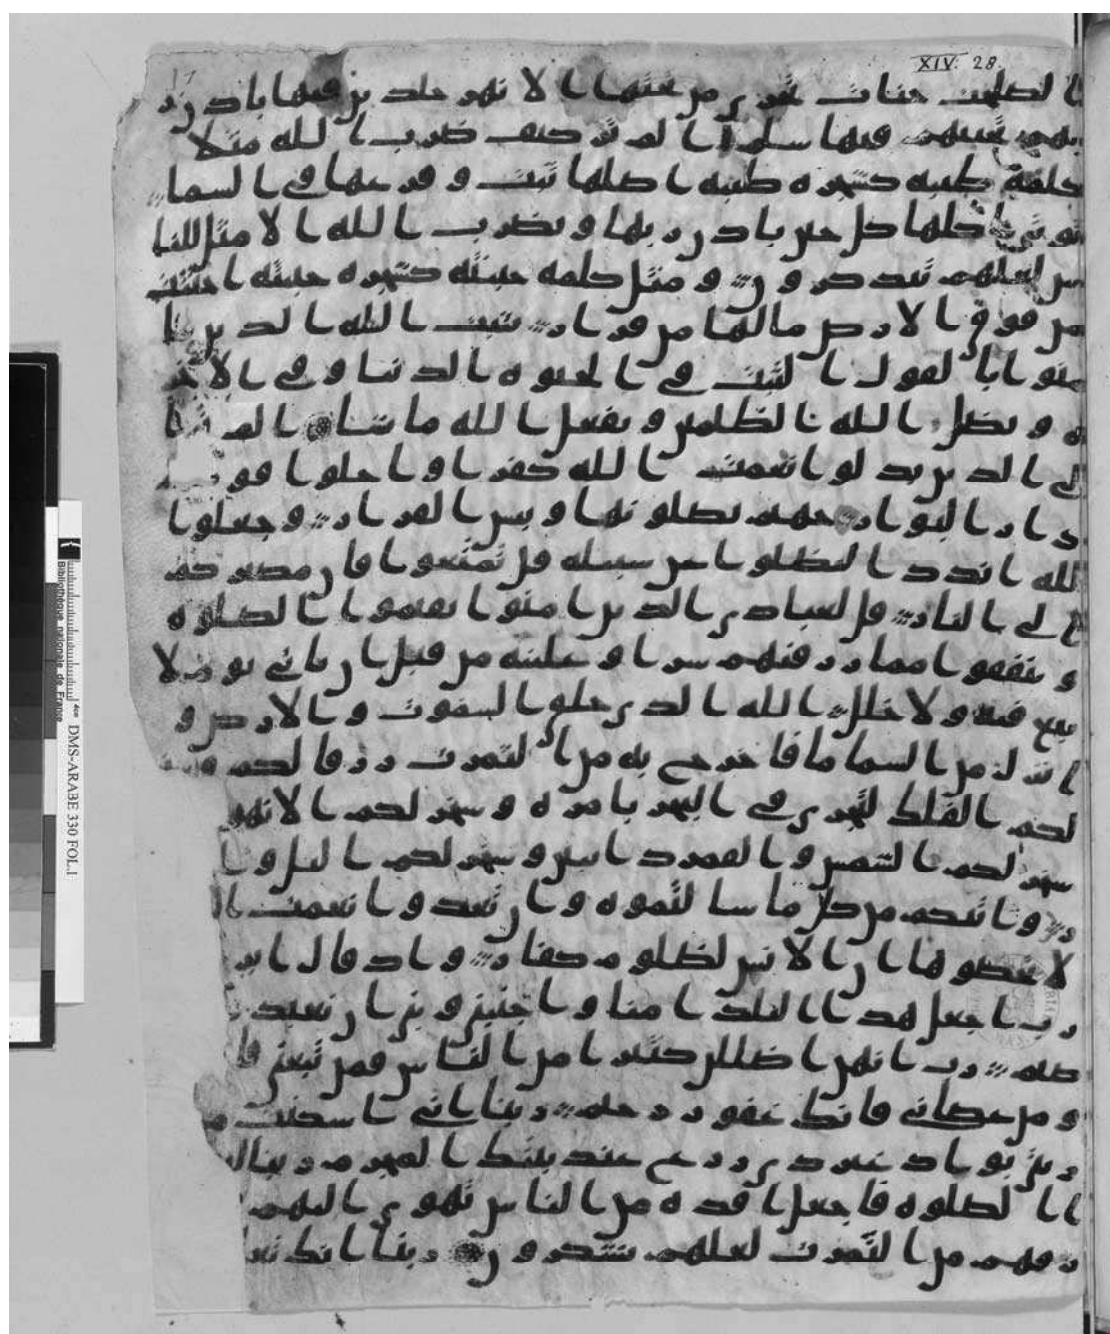 XIV. 28.
ا لصلحت جنات تجري من تحتها ا لا نهر خلدين فيها باذن ر
بهم تحيتهم فيها سلم ا لم تر كيف ضرب ا لله مثلا
كلمة طيبه كشجره طيبه اصلها ثبت و فرعها في ا لسما
توتي اكلها كل حين باذن ربها و يضرب ا لله ا لا مثل للنا
س لعلهم يتذكرون و مثل كلمه خبيثه كشجره خبيثه اجتثت
من فوق ا لارض ما لها من قرار يثبت ا لله ا لذين ا
منوا با لقول ا لثبت في ا لحيوه ا لدنيا و في ا لاخر
ه و يضل ا لله ا لظلمين و يفعل ا لله ما يشا ا لم تر ا
لي ا لذين بدلوا نعمت ا لله كفرا و ا حلوا قو
دار ا لبوار جهنم يصلونها و بيس ا لقرار و جعلوا
لله اندادا ليضلوا عن سبيله قل تمتعوا فان مصيركم
ا لي ا لنار قل لعبادي ا لذين امنوا يقيموا ا لصلوه
و ينفقوا مما رزقنهم سرا و علنيه من قبل ان ياتي يوم لا
بيع فيه و لا خلل ا لله ا لذي خلق ا لسموت و ا لارض و
انزل من ا لسما ما فاخرج به من ا لثمرت رزقا لكم وسخر
لكم ا لفلك لتجري في ا لبحر بامره و سخر لكم ا لانهر
سخر لكم ا لشمس و ا لقمر دايبين و سخر لكم ا ليل و ا
ر و اتيكم من كل ما سالتموه و ان تعدوا نعمت ا لله
لا تحصوها ان ا لانسن لظلوم كفار و اذ قال ابر
رب اجعل هذا ا لبلد امنا و اجنبني و بني ان نعبد
صنم رب انهن اضللن كثيرا من ا لناس فمن تبعني فا
و من عصاني فانك غفور رحيم ربنا اني اسكنت من
ذريتي بواد غير ذي زرع عند بيتك ا لمحرم ربنا لي
ا ا لصلوه فاجعل افده من ا لناس تهوي اليهم
رزقهم من ا لثمرت لعلهم يشكرون ربنا انك تعلم
Bibliothèque nationale de France
DMS-ARABE 330 FOL.1